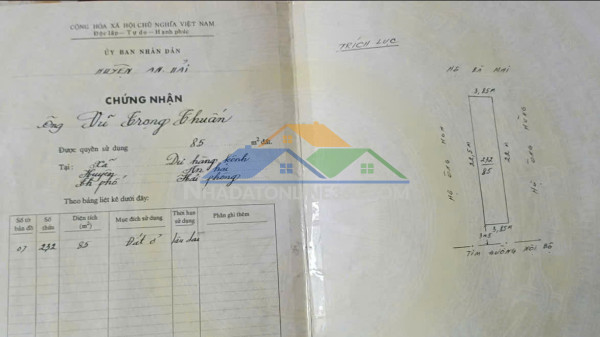 CỘNG HÒA XÃ HỘI CHỦ NGHĨA VIỆT NAM
Độc lập - Tự do - Hạnh phúc
ỦY BAN NHÂN DÂN
HUYỆN AN HẢI
CHỨNG NHẬN
Ông Vũ Trọng Thuấn
Được quyền sử dụng 85 m² đất.
Tại : Xã Dư hàng kênh
Huyện An hải
Th phố Hải phòng
Theo bảng liệt kê dưới đây:
Số tờ bản đồ
Số thửa
Diện tích (m²)
Mục đích sử dụng
Thời hạn sử dụng
Phần ghi thêm
07 232 85 Đất ở lâu dài
NHADATONLINES.COM
TRÍCH LỤC
HỘ BÀ
3,85m
HỘ ÔNG
22,5m
232
85
22m
HỘ ÔNG
3,85m
3m5
TIM ĐƯỜNG